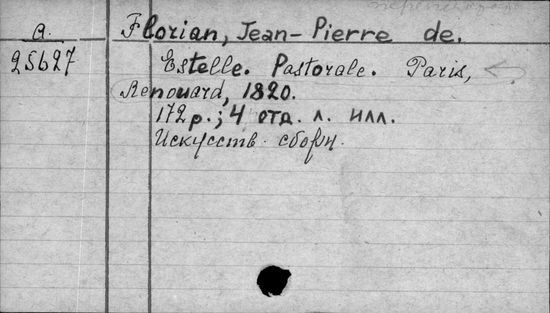 a. Florian, Jean-Pierre de.
25627 Estelle. Pastorale. Paris,
Renouard, 1820.
172 p.; 4 отд. л. илл.
Искусств. сборн.